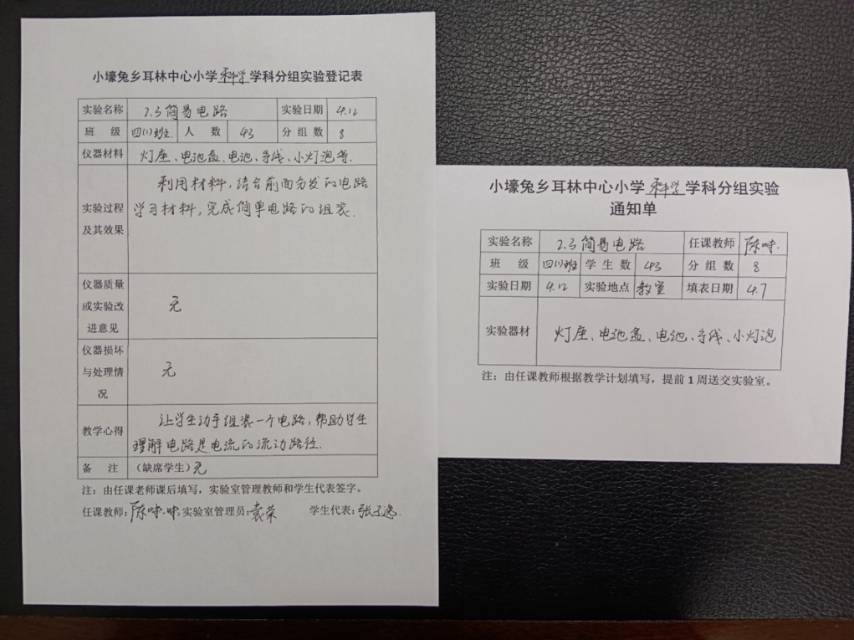 小壕兔乡耳林中心小学科学学科分组实验登记表
实验名称 2.3简易电路 实验日期 4.12
班 级 四(1)班 人 数 43 分 组 数 8
仪器材料 灯座、电池盒、电池、导线、小灯泡等.
实验过程及其效果
利用材料,结合前面分发的电路
学习材料,完成简单电路的组装.
仪器质量
或实验改
进意见
无
仪器损坏
与处理情
况
无
教学心得
让学生动手组装一个电路,帮助学生
理解电路是电流的流动路径.
备 注 (缺席学生)无
注:由任课老师课后填写,实验室管理教师和学生代表签字。
任课教师: 实验室管理员:袁荣 学生代表:
小壕兔乡耳林中心小学科学学科分组实验
通知单
实验名称 2.3简易电路 任课教师
班 级 四(1)班 学 生 数 43 分 组 数 8
实验日期 4.12 实验地点 教室 填表日期 4.7
实验器材 灯座、电池盒、电池、导线、小灯泡
注:由任课教师根据教学计划填写,提前1周送交实验室。